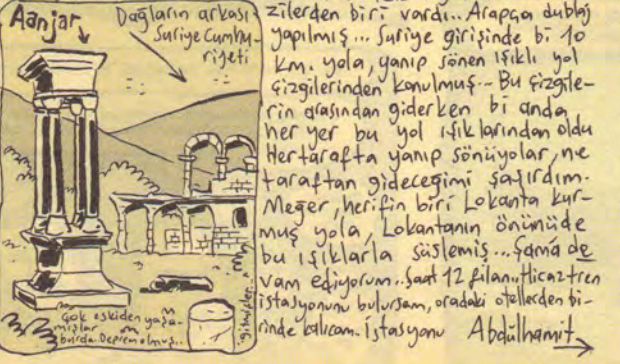 Aanjar
Dağların arkası
Suriye Cumhu-
riyeti
Çok eskiden yaşa-
mışlar
burda. Deprem olmuş..
gitmişler.
zilerden biri vardı.. Arapça dublaj
yapılmış... Suriye girişinde bi 10
km. yola, yanıp sönen ışıklı yol
çizgilerinden konulmuş.. Bu çizgile-
rin arasından giderken bi anda
her yer bu yol ışıklarından oldu
Hertarafta yanıp sönüyolar, ne
taraftan gideceğimi şaşırdım.
Meğer, herifin biri Lokanta kur-
muş yola, Lokantanın önünüde
bu ışıklarla süslemiş... Şama de
vam ediyorum.. Saat 12 filan.. Hicaz tren
istasyonunu bulursam, oradaki otellerden bi-
rinde kalıcam. İstasyonu Abdülhamit